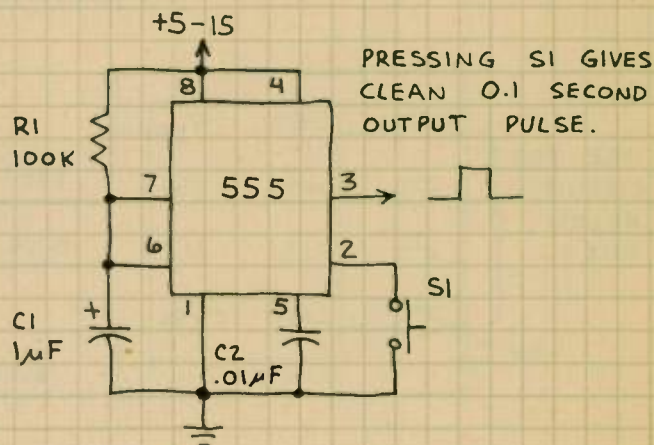 +5-15
PRESSING S1 GIVES
CLEAN 0.1 SECOND
OUTPUT PULSE.
8 4
R1
100K
7 555 3
6 2
S1
1 5
C1 +
1µF
C2
.01µF